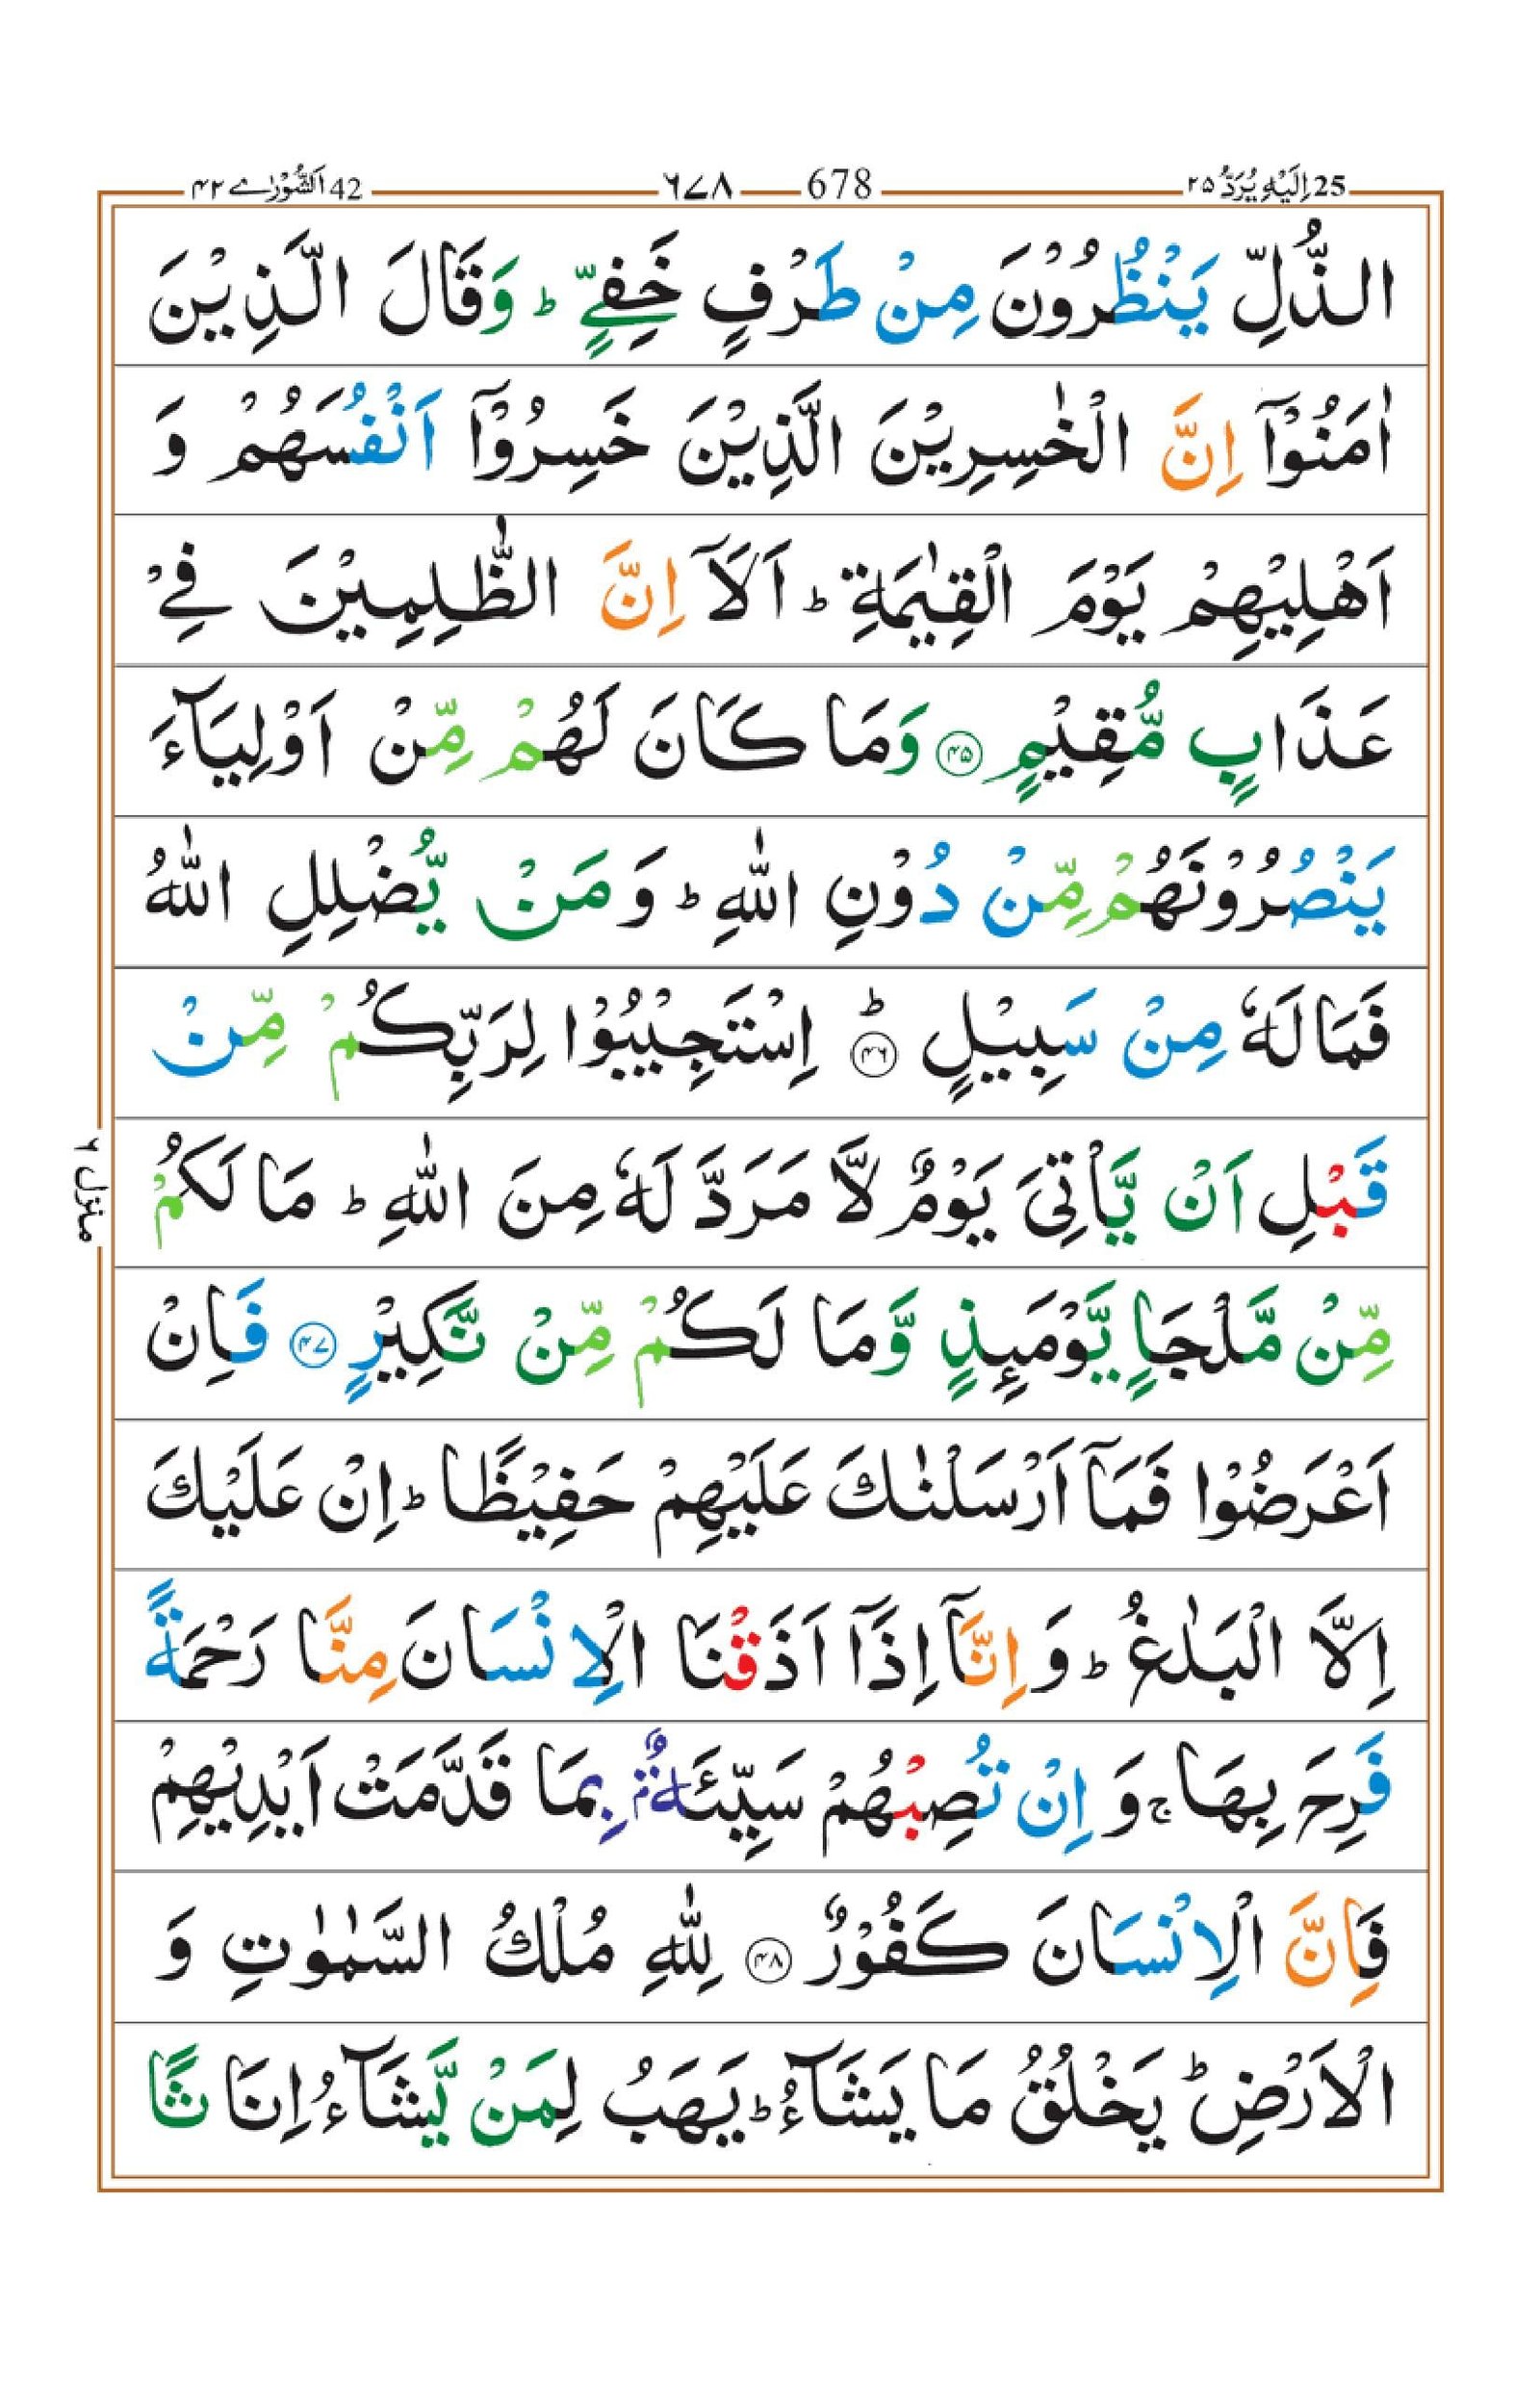 اَلشُّوْرٰى ٤٢ 42 ٦٧٨ 678 اِلَيْهِ يُرَدُّ ٢٥ 25
الذُّلِّ يَنْظُرُوْنَ مِنْ طَرْفٍ خَفِيٍّ ؕ وَقَالَ الَّذِيْنَ
اٰمَنُوْۤا اِنَّ الْخٰسِرِيْنَ الَّذِيْنَ خَسِرُوْۤا اَنْفُسَهُمْ وَ
اَهْلِيْهِمْ يَوْمَ الْقِيٰمَةِ ؕ اَلَاۤ اِنَّ الظّٰلِمِيْنَ فِيْ
عَذَابٍ مُّقِيْمٍ ۝۴۵ وَمَا كَانَ لَهُمْ مِّنْ اَوْلِيَآءَ
يَنْصُرُوْنَهُمْ مِّنْ دُوْنِ اللّٰهِ ؕ وَمَنْ يُّضْلِلِ اللّٰهُ
فَمَا لَهٗ مِنْ سَبِيْلٍ ؕ۝۴۶ اِسْتَجِيْبُوْا لِرَبِّكُمْ مِّنْ
قَبْلِ اَنْ يَّاْتِيَ يَوْمٌ لَّا مَرَدَّ لَهٗ مِنَ اللّٰهِ ؕ مَا لَكُمْ
مِّنْ مَّلْجَاٍ يَّوْمَئِذٍ وَّمَا لَكُمْ مِّنْ نَّكِيْرٍ ۝۴۷ فَاِنْ
اَعْرَضُوْا فَمَاۤ اَرْسَلْنٰكَ عَلَيْهِمْ حَفِيْظًا ؕ اِنْ عَلَيْكَ
اِلَّا الْبَلٰغُ ؕ وَاِنَّاۤ اِذَاۤ اَذَقْنَا الْاِنْسَانَ مِنَّا رَحْمَةً
فَرِحَ بِهَا ۚ وَاِنْ تُصِبْهُمْ سَيِّئَةٌۢ بِمَا قَدَّمَتْ اَيْدِيْهِمْ
فَاِنَّ الْاِنْسَانَ كَفُوْرٌ ۝۴۸ لِلّٰهِ مُلْكُ السَّمٰوٰتِ وَ
الْاَرْضِ ؕ يَخْلُقُ مَا يَشَآءُ ؕ يَهَبُ لِمَنْ يَّشَآءُ اِنَاثًا
منزل ٦